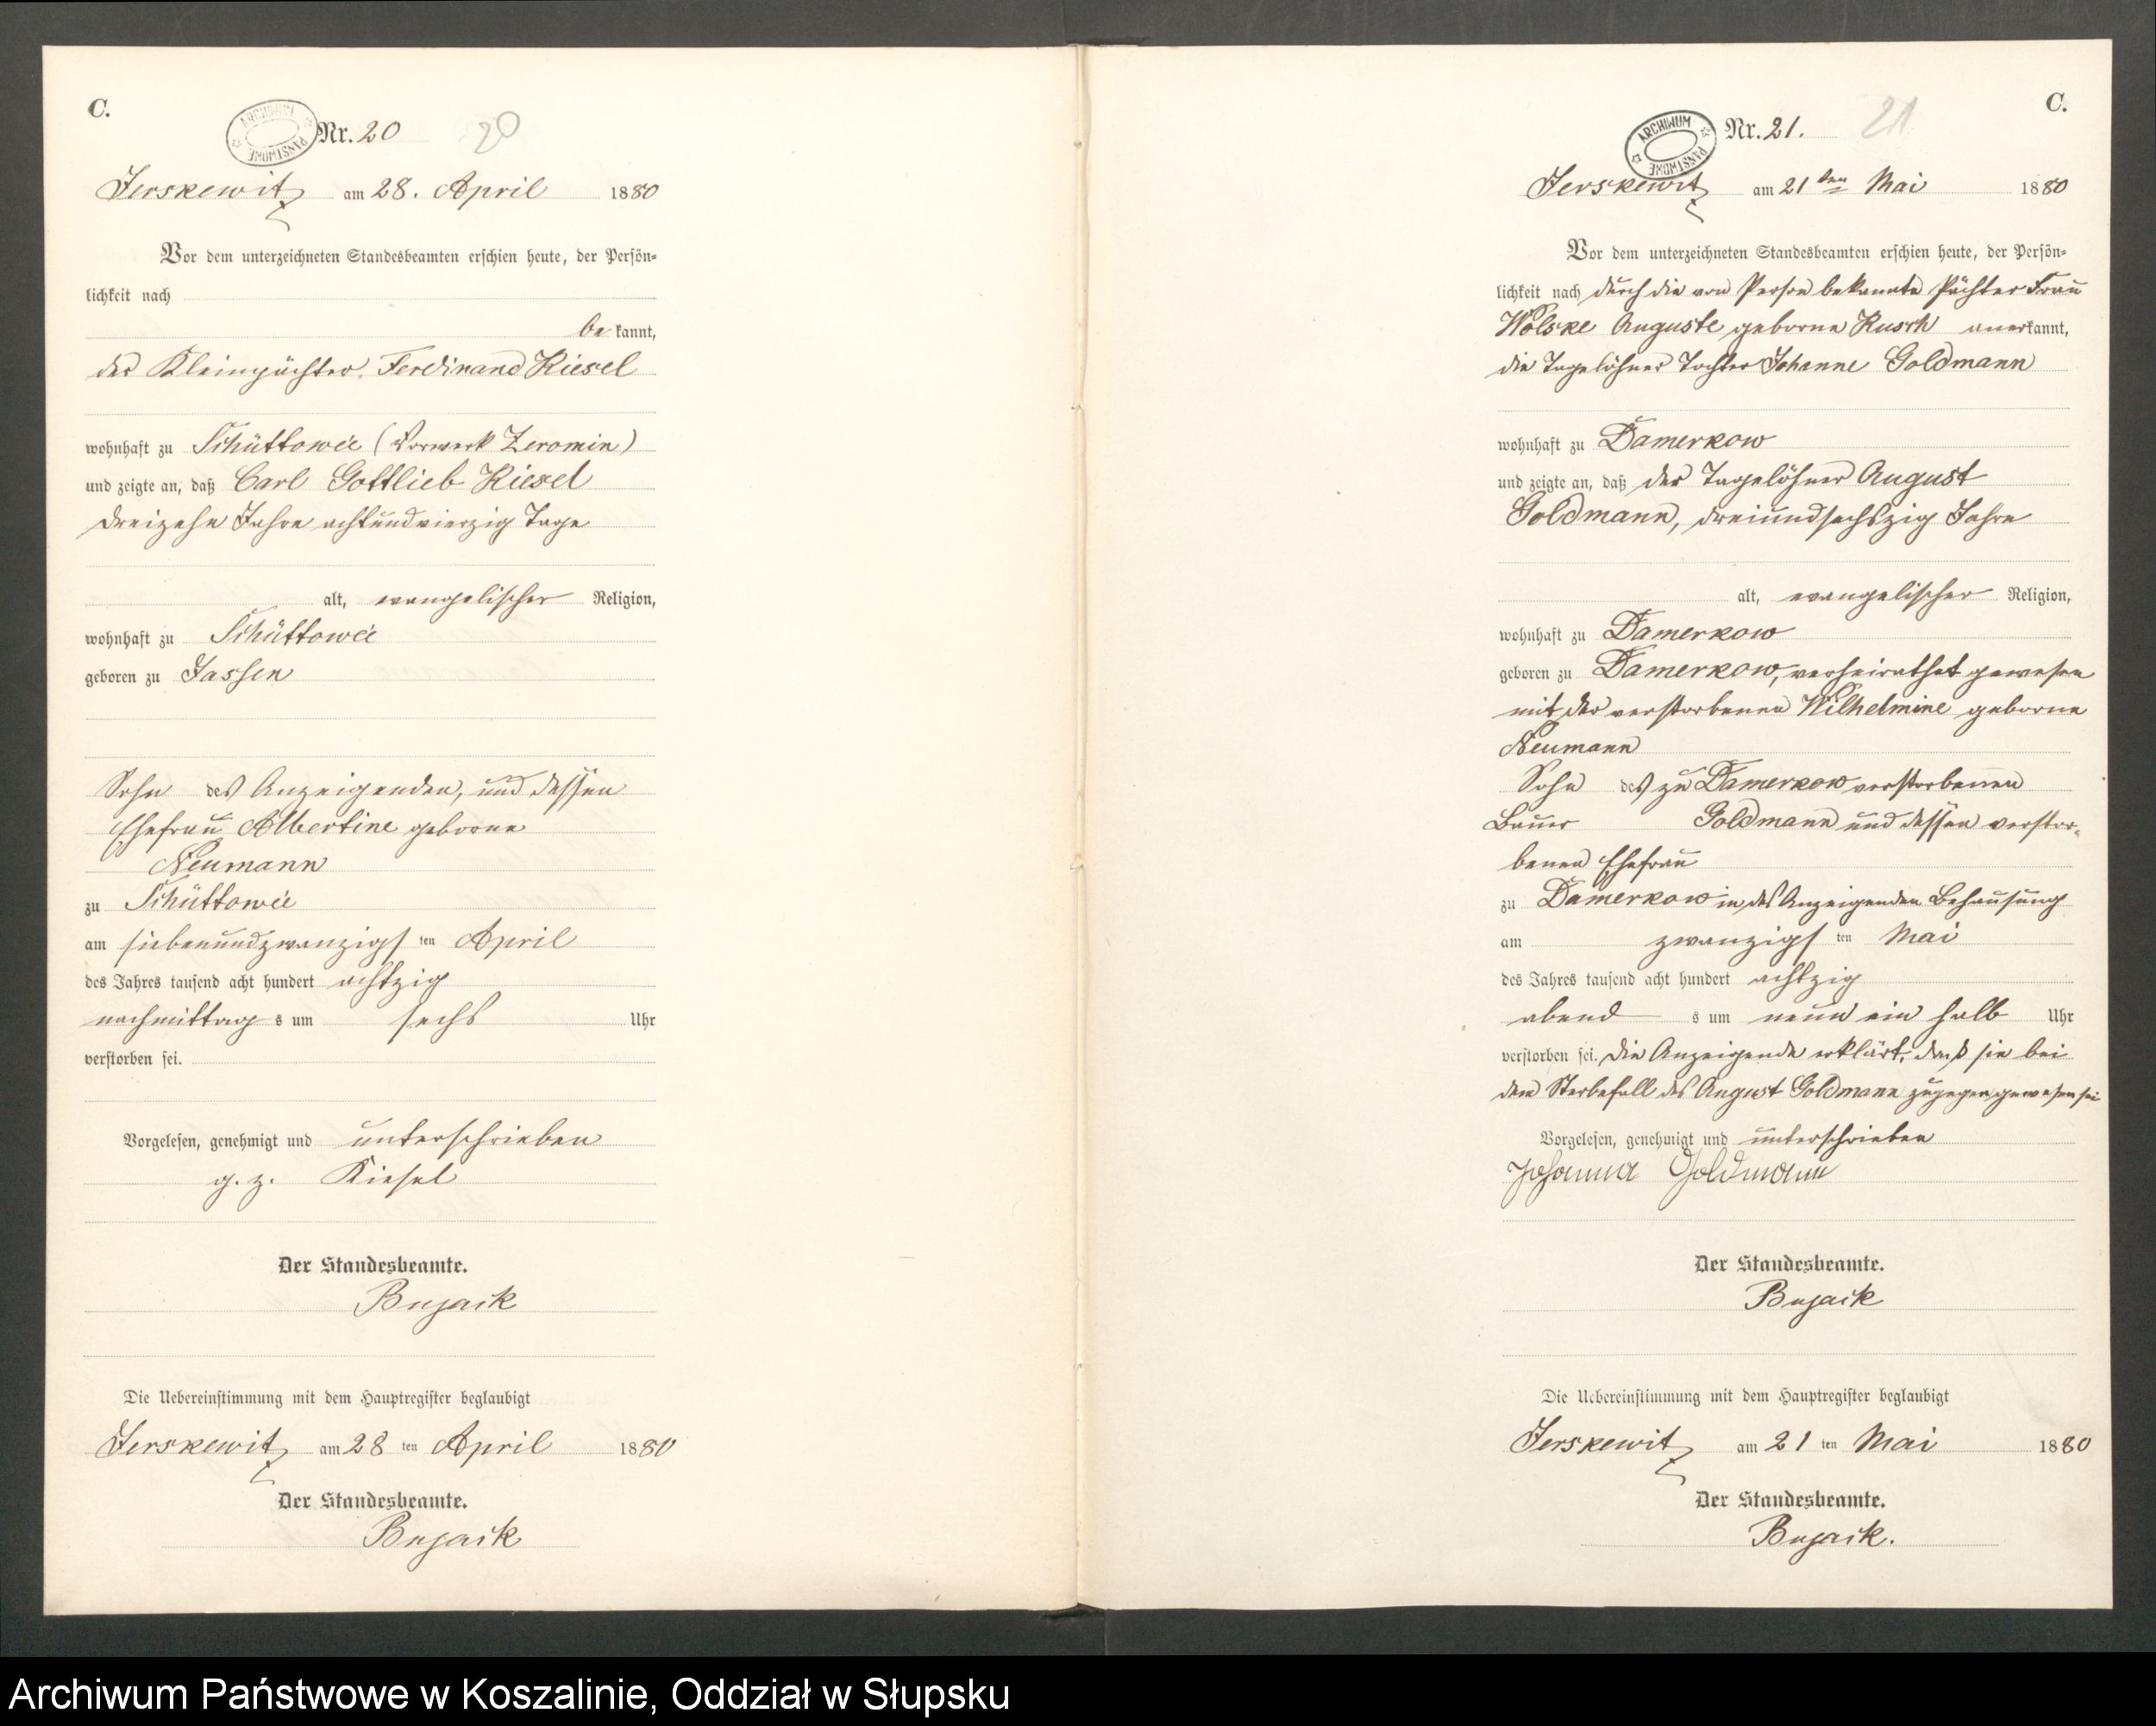 C.
ARCHIWUM PAŃSTWOWE
Nr. 20
20
Jerskewitz am 28. April 1880
Vor dem unterzeichneten Standesbeamten erschien heute, der Persön-
lichkeit nach
be kannt,
der Kleinpächter Ferdinand Kiesel
wohnhaft zu Schüttowie (Vorwerk Zeromin)
und zeigte an, daß Carl Gottlieb Kiesel
dreizehn Jahre achtundvierzig Tage
alt, evangelischer Religion,
wohnhaft zu Schüttowie
geboren zu Jassen
Sohn des Anzeigenden, und dessen
Ehefrau Albertine geborne
Neumann
zu Schüttowie
am siebenundzwanzigs ten April
des Jahres tausend acht hundert achtzig
nachmittag s um sechs Uhr
verstorben sei.
Vorgelesen, genehmigt und unterschrieben
g. z. Kiesel
Der Standesbeamte.
Bujack
Die Uebereinstimmung mit dem Hauptregister beglaubigt
Jerskewitz am 28 ten April 1880
Der Standesbeamte.
Bujack
C.
ARCHIWUM PAŃSTWOWE
Nr. 21.
21
Jerskewitz am 21ten Mai 1880
Vor dem unterzeichneten Standesbeamten erschien heute, der Persön-
lichkeit nach durch die von Person bekannte Pächter Frau
Wolske Auguste geborne Kusch anerkannt,
die Tagelöhner Tochter Johanne Goldmann
wohnhaft zu Damerkow
und zeigte an, daß der Tagelöhner August
Goldmann, dreiundsechszig Jahre
alt, evangelischer Religion,
wohnhaft zu Damerkow
geboren zu Damerkow, verheirathet gewesen
mit der verstorbenen Wilhelmine geborne
Neumann
Sohn des zu Damerkow verstorbenen
Bauer Goldmann und dessen verstor-
benen Ehefrau
zu Damerkow in des Anzeigenden Behausung
am zwanzigs ten Mai
des Jahres tausend acht hundert achtzig
abend s um neun ein halb Uhr
verstorben sei. Die Anzeigende erklärt, daß sie bei
dem Sterbefall des August Goldmann zugegen gewesen sei
Vorgelesen, genehmigt und unterschrieben
Johanna Goldmann
Der Standesbeamte.
Bujack
Die Uebereinstimmung mit dem Hauptregister beglaubigt
Jerskewitz am 21 ten Mai 1880
Der Standesbeamte.
Bujack.
Archiwum Państwowe w Koszalinie, Oddział w Słupsku